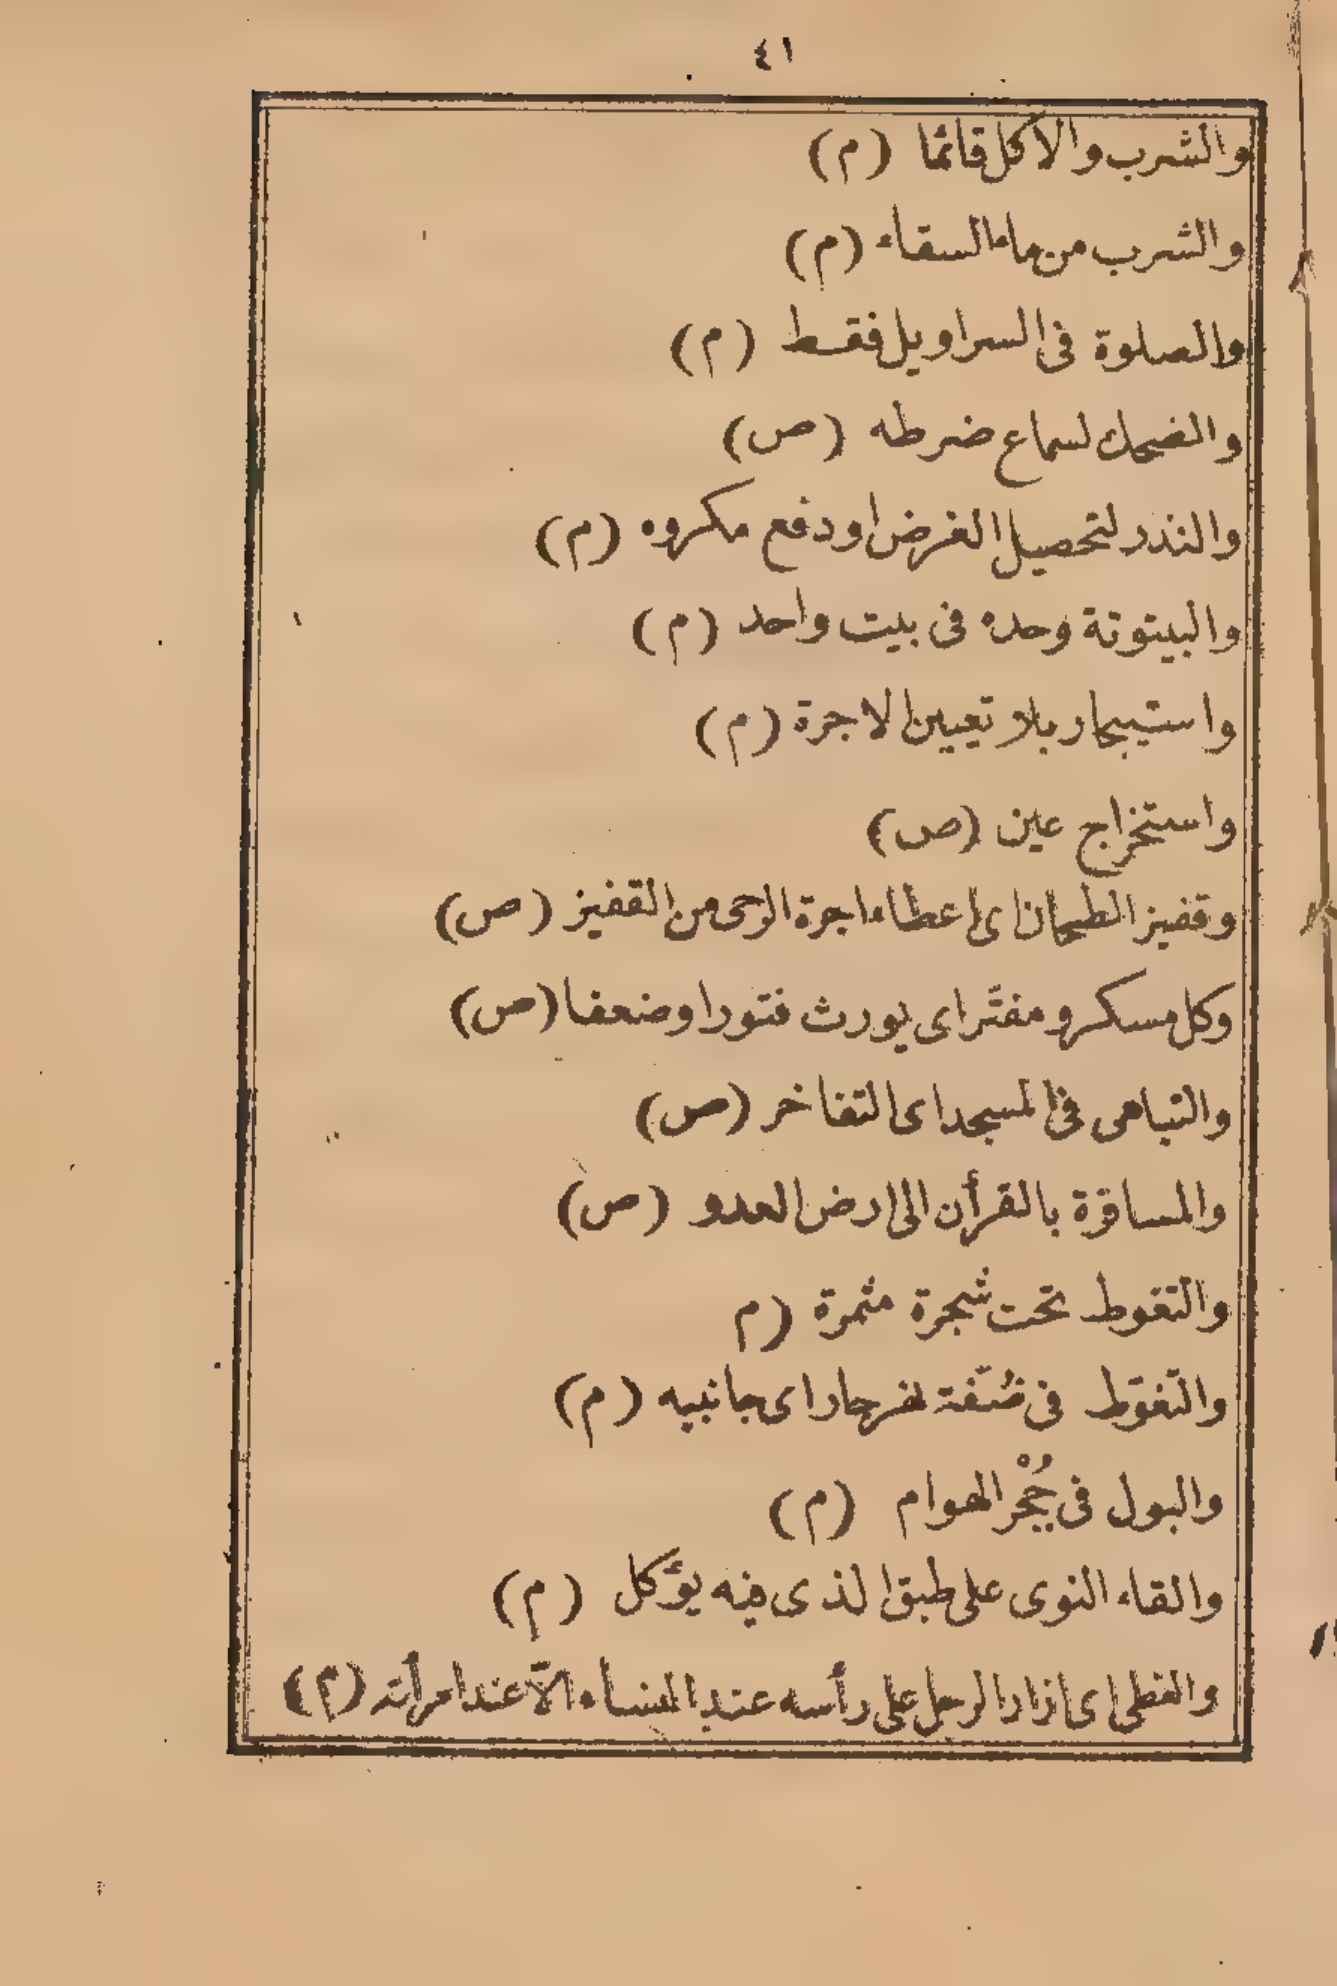 ٤١
والشرب والاكل قائما (م)
والشرب من ماء السقاء (م)
والصلوة فى السراويل فقط (م)
والضحك لسماع ضرطه (ص)
والنذر لتحصيل الغرض او دفع مكروه (م)
والبيتوتة وحده فى بيت واحد (م)
واستيجار بلا تعيين الاجرة (م)
واستخراج عين (ص)
وقفيز الطحان اى اعطاء اجرة الرحى من القفيز (ص)
وكل مسكر ومفتّر اى يورث فتورا وضعفا (ص)
والتباهى فى المسجد اى التفاخر (ص)
والمسافرة بالقرأن الى ارض العدو (ص)
والتغوط تحت شجرة مثمرة (م
والتّغوّط فى ضَفّة نهر جار اى جانبيه (م)
والبول فى جُحْر الهوام (م)
والقاء النوى على طبق الذى فيه يؤكل (م)
والغطى اى ازار الرجل على رأسه عند النساء الّا عند امرأته (م)